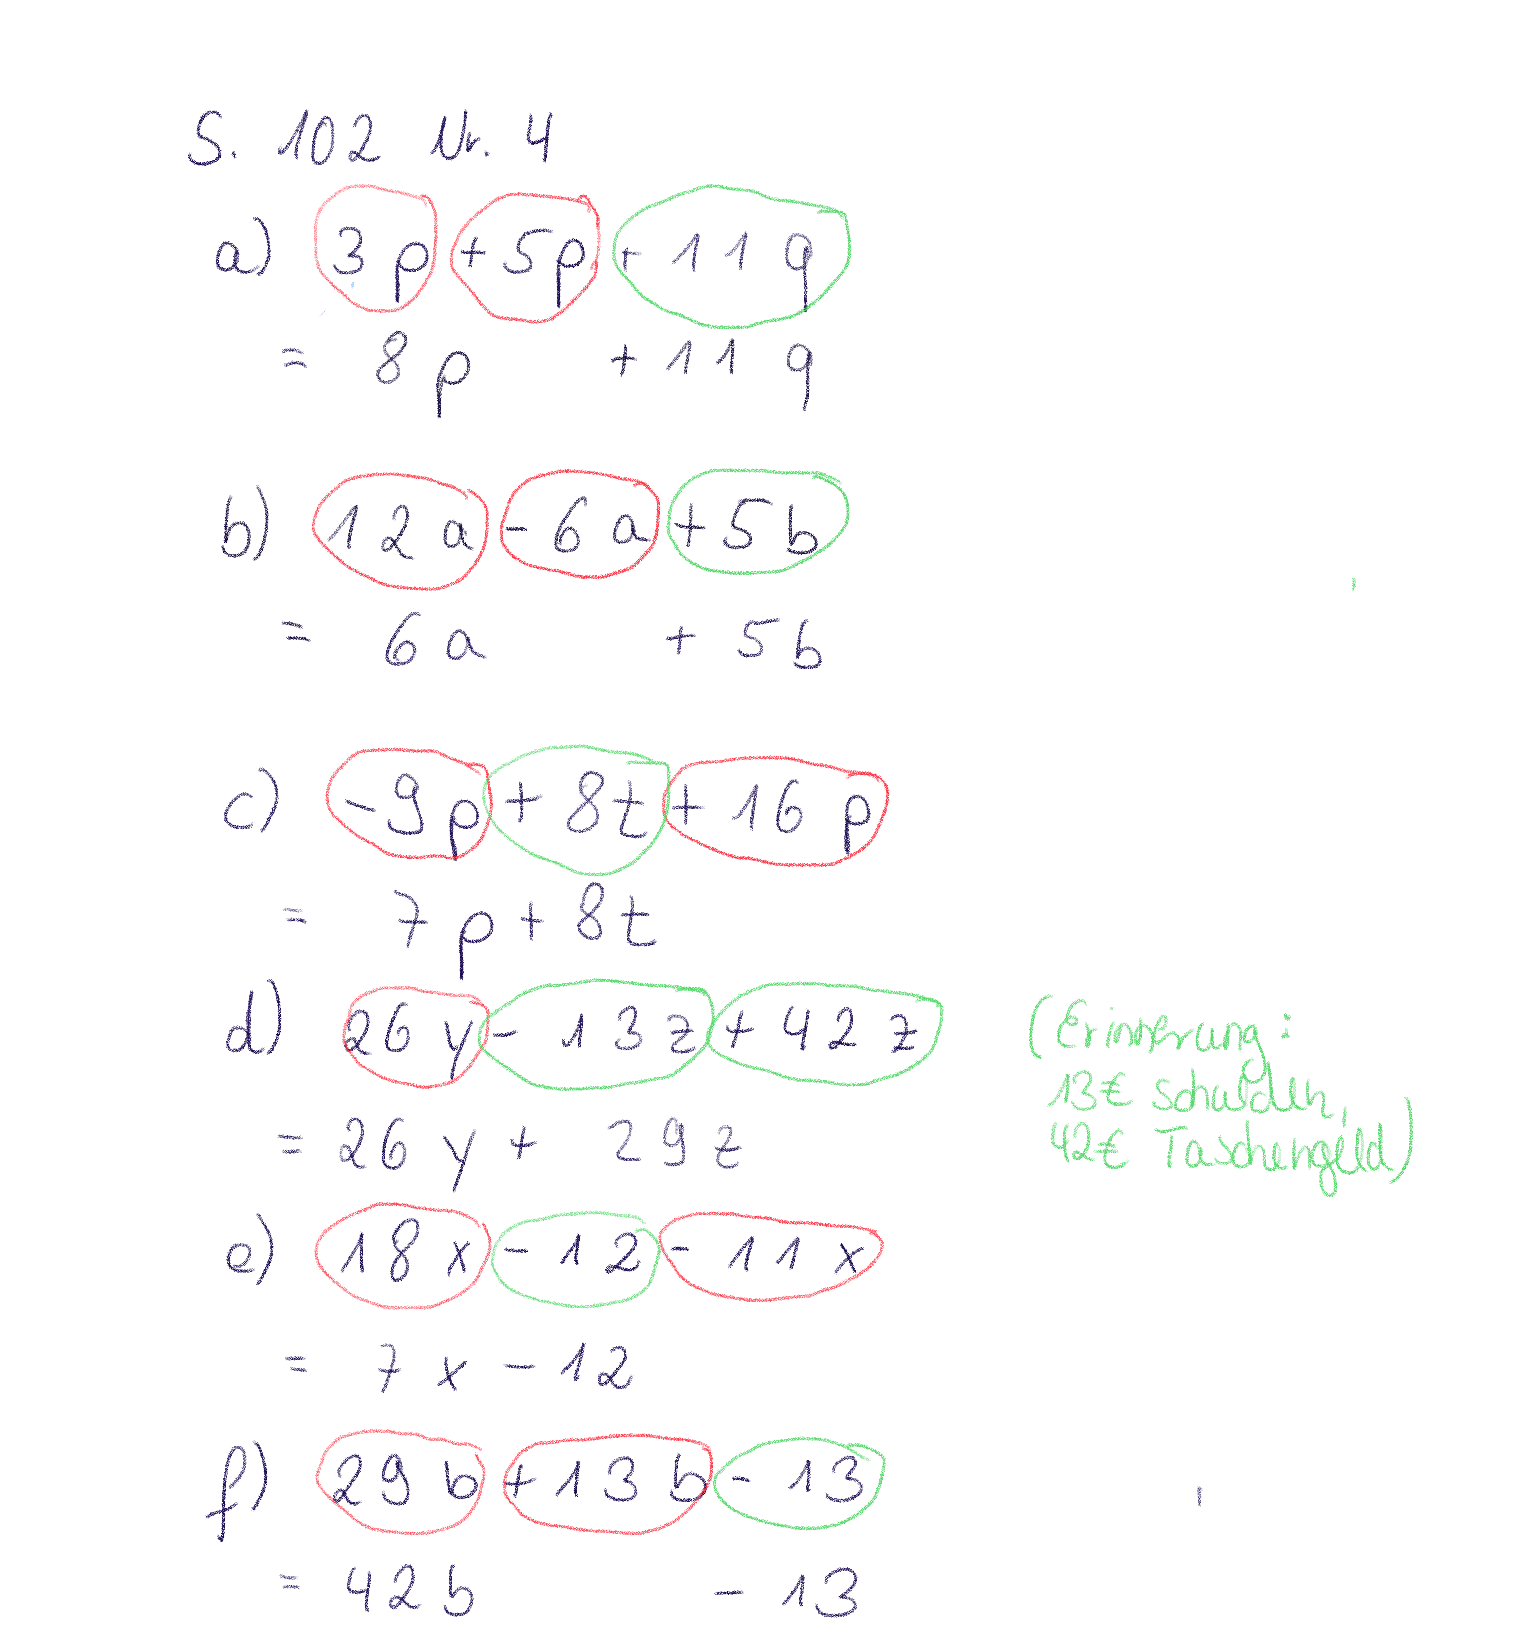 S. 102 Nr. 4
a) 3p + 5p + 11q
= 8p + 11q
b) 12a - 6a + 5b
= 6a + 5b
c) -9p + 8t + 16p
= 7p + 8t
d) 26y - 13z + 42z
= 26y + 29z
(Erinnerung:
13€ Schulden,
42€ Taschengeld)
e) 18x - 12 - 11x
= 7x - 12
f) 29b + 13b - 13
= 42b - 13